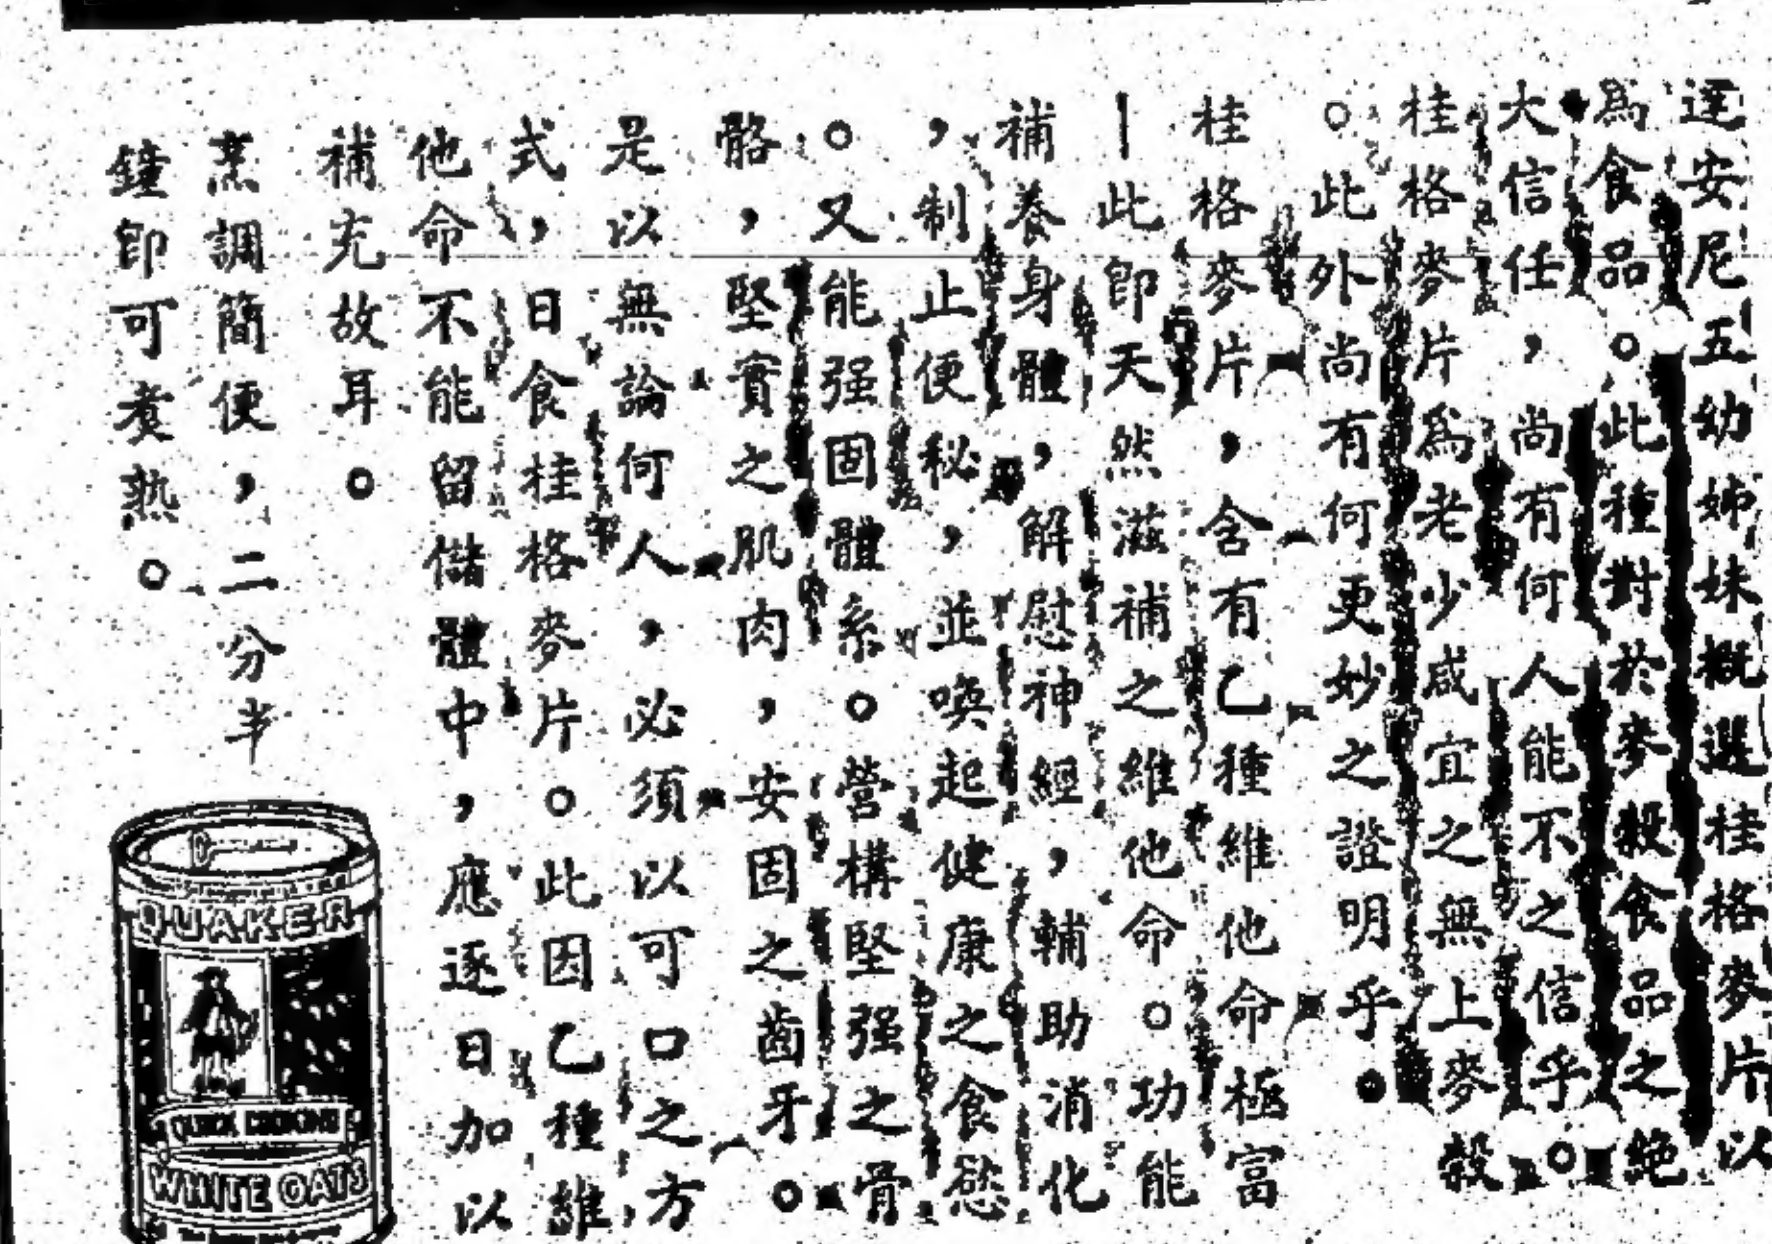 達安尼五幼姊妹概選桂格麥片以
為食品。此種對於麥穀食品之絕
大信任,尚有何人能不之信乎。
桂格麥片為老少咸宜之無上麥穀
。此外尚有何更妙之證明乎。
桂格麥片,含有乙種維他命極富
—此即天然滋補之維他命。功能
補養身體,解慰神經,輔助消化
,制止便秘,並喚起健康之食慾
。又能强固體系。營構堅强之骨
骼,堅實之肌肉,安固之齒牙。
是以無論何人,必須以可口之方
式,日食桂格麥片。此因乙種維
他命不能留儲體中,應逐日加以
補充故耳。
烹調簡便,二分半
鐘即可煮熟。
QUAKER
QUICK COOKING
WHITE OATS